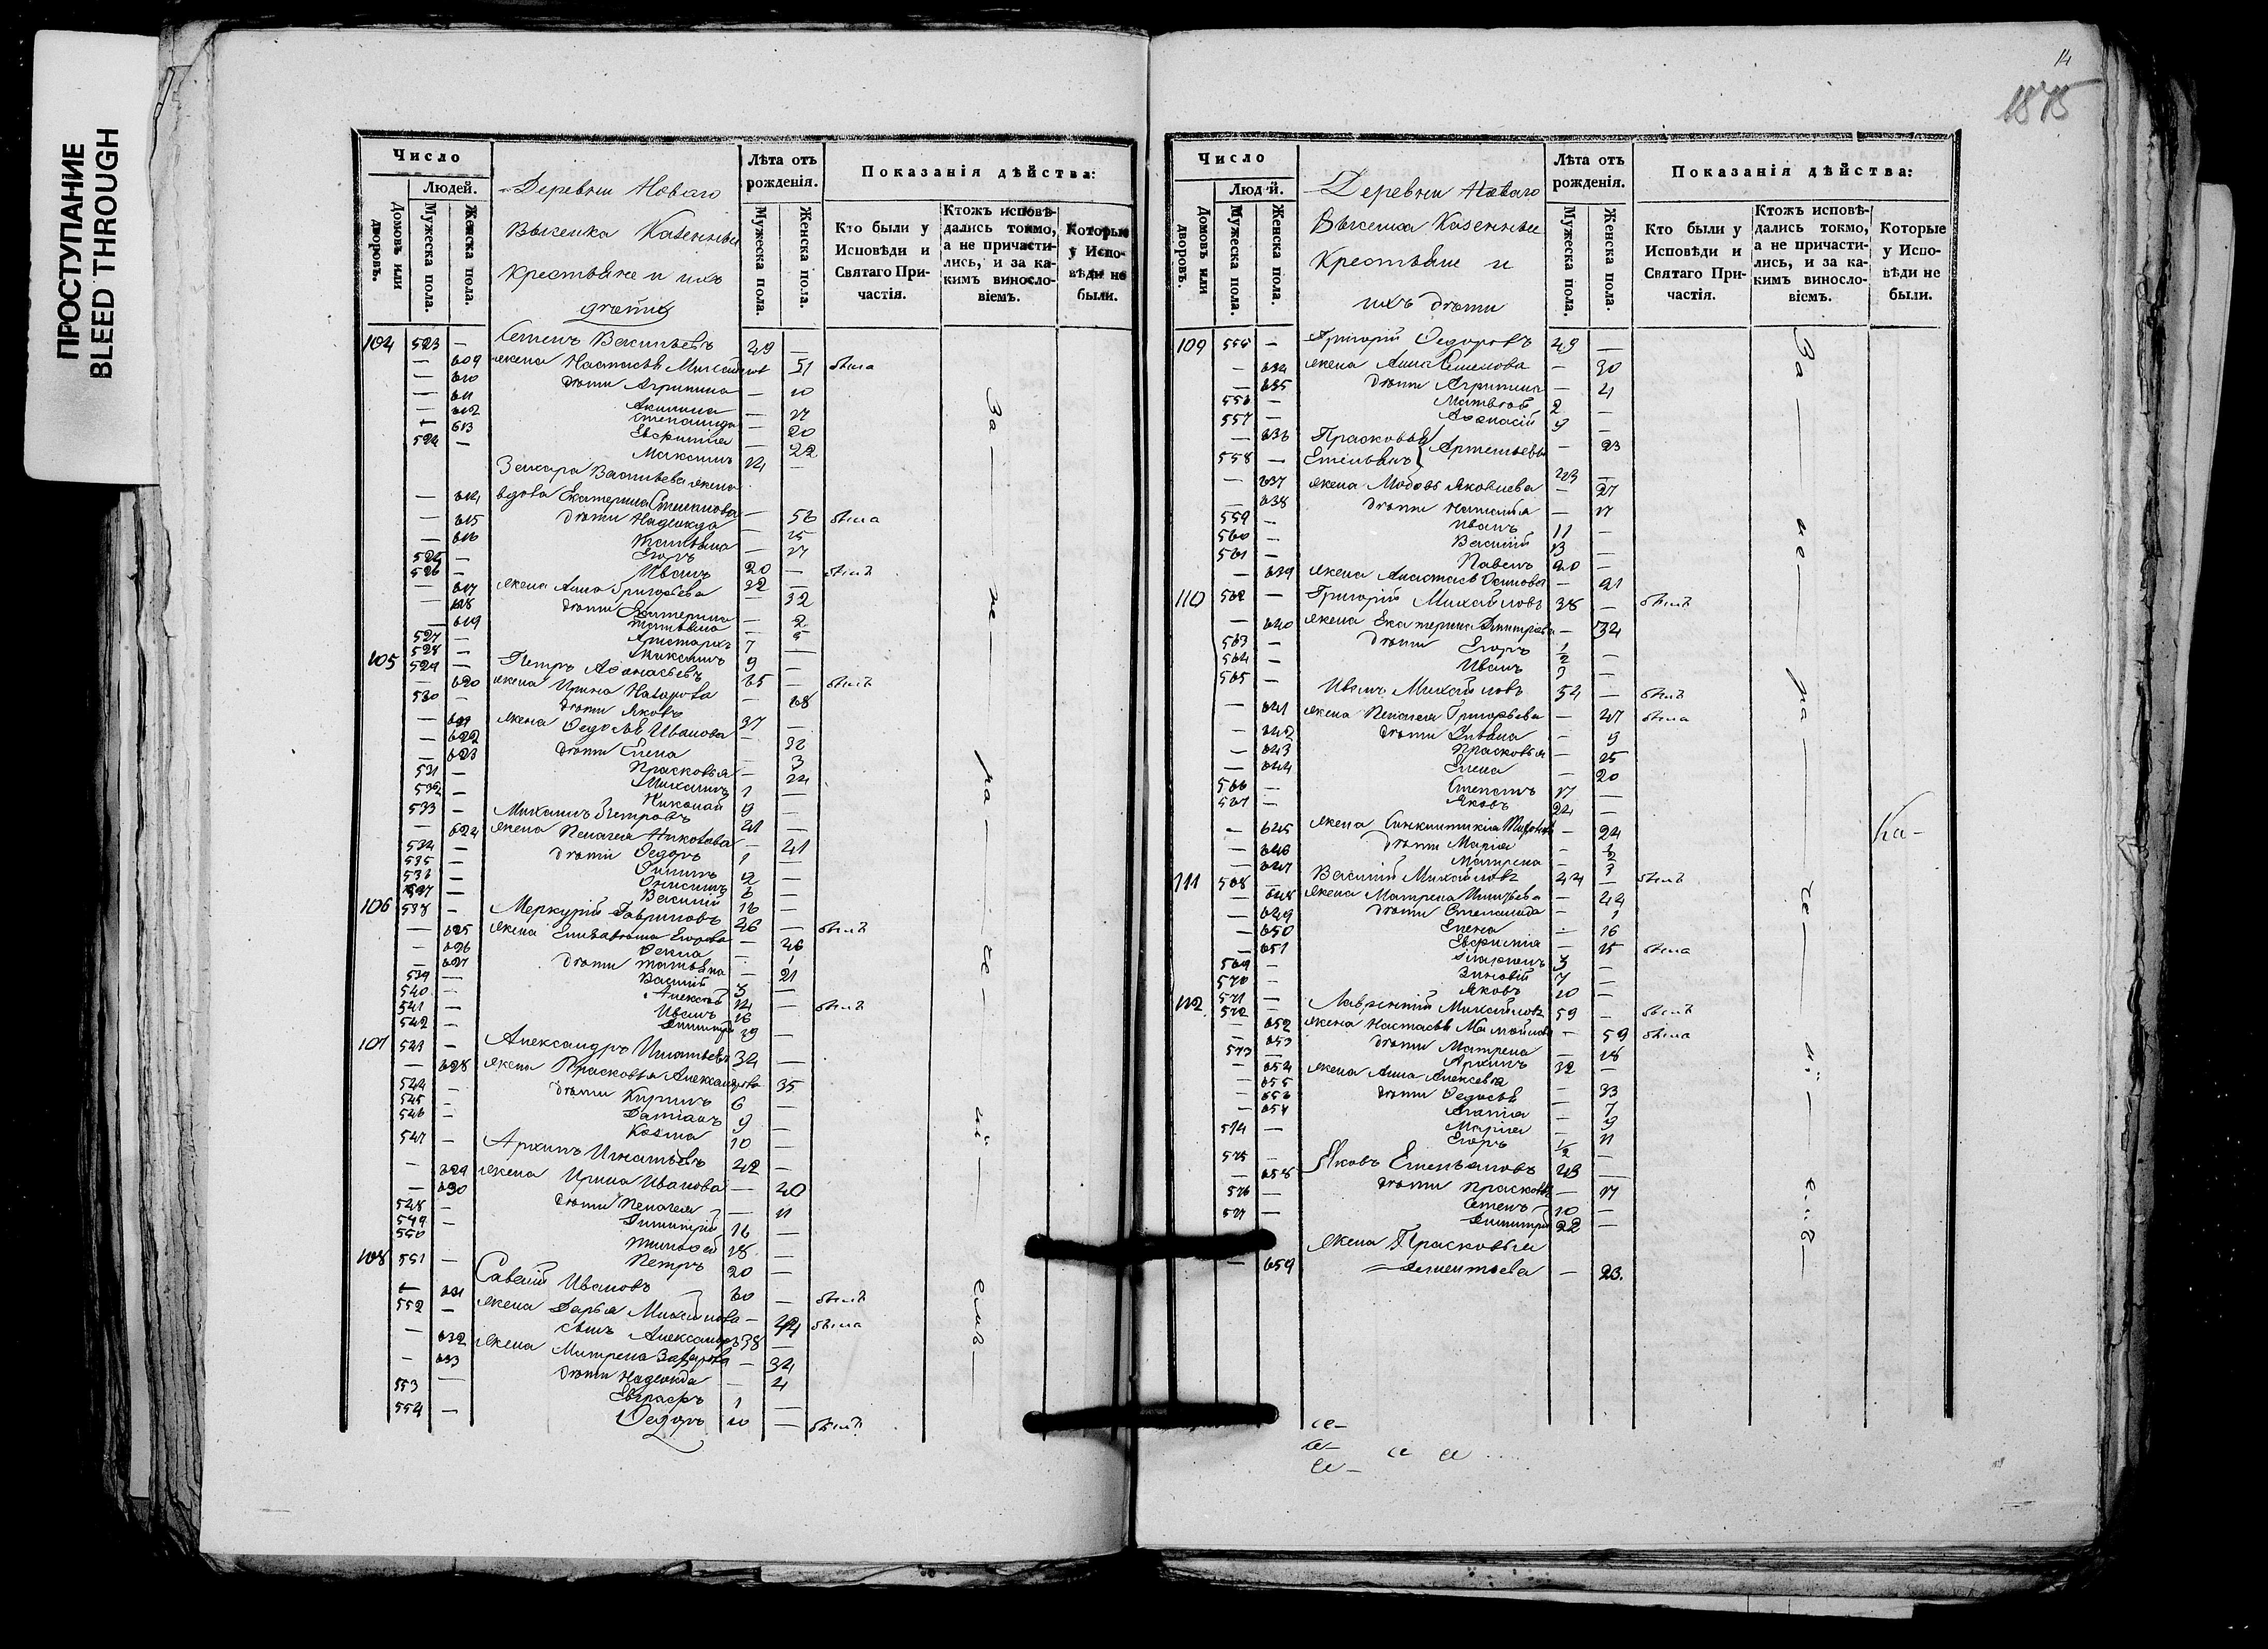 ПРОСТУПАНИЕ
BLEED THROUGH
Число
Людей.
Домовъ или дворовъ.
Мужеска пола.
Женска пола.
Деревни Новаго
Казенныи
Крестьяне и ихъ
дѣти
Лѣта отъ рожденія.
Мужеска пола.
Женска пола.
Показанія дѣйства:
Кто были у Исповѣди и Святаго Причастія.
Ктожъ исповѣдались токмо, а не причастились, и за какимъ винословіемъ.
Которые у Исповѣди не были.
104 523 — Семенъ Васильевъ 49 —
— 609 жена Настасья 51 была
— 610 дѣти Агрипина — 10
— 611 Акилина — 17
— 612 Степанида — 20
— 613 Евфимия — 22
524 — Максимъ 14 —
Захара Васильева жена
— 614 вдова Екатерина — 56 была
— 615 дѣти Надежда — 15
— 616 Татьяна — 17
525 — Егоръ 20 — былъ
526 — Иванъ 32
— 617 жена Анна Григорьева — 32
— 618 дѣти Екатерина — 2
— 619 Татьяна — 5
527 — Аристархъ 7 —
528 — Максимъ 9 —
105 529 — Петръ Афонасьевъ 65 — былъ
— 620 жена Ирина Назарова — 68
530 — дѣти Яковъ 37 —
— 621 жена Федосья Иванова — 36
— 622 дѣти Елена — 3
— 623 Прасковья — 24
531 — 1 —
532 — Николай 9 —
533 — Михаилъ Петровъ 41 —
— 624 жена Пелагея — 41
534 — дѣти Федоръ 1 —
535 — Филипъ 2 —
536 — Онисимъ 6 —
537 — Василий 16 —
106 538 — Меркурий Гавриловъ 46 — былъ
— 625 жена Елизавета Егорова — 46
— 626 Фекла — 1
— 627 дѣти Татьяна — 21
539 — Василий 3 —
540 — Алексѣй 14 — былъ
541 — Иванъ 16
542 — Димитрий 19 —
107 543 — Александръ Игнатьевъ 34 —
— 628 жена Прасковья Александрова 35
544 — дѣти Кирилъ 6 —
545 — Дамианъ 9 —
546 — Козма 10 —
547 — Архипъ Игнатьевъ 42 —
— 629 жена Ирина Иванова — 40
— 630 дѣти Пелагея — 11
548 — Димитрий 16 —
549 — Тимофей 18 —
550 Петръ 20 —
108 551 — Савелий Ивановъ 60 — былъ
— 631 жена Дарья Михайлова — была
552 — сынъ Александръ 38 —
— 632 жена Матрена — 34
— 633 дѣти Надежда — 4
553 — Евграфъ 1 —
554 — Федоръ 10 — былъ
За — не — ра — че — ні — емъ —
14
1875
Число
Людей.
Домовъ или дворовъ.
Мужеска пола.
Женска пола.
Деревни Новаго
Казенныи
Крестьяне и
ихъ дѣти
Лѣта отъ рожденія.
Мужеска пола.
Женска пола.
Показанія дѣйства:
Кто были у Исповѣди и Святаго Причастія.
Ктожъ исповѣдались токмо, а не причастились, и за какимъ винословіемъ.
Которые у Исповѣди не были.
109 555 — Григорий Федоровъ 49 —
— 634 жена Анна Семенова — 30
— 635 дѣти Агрипина — 4
556 — Матвѣй 2 —
557 — Афонасий 9 —
— 636 Прасковья Артемьевы — 23
558 — Емельянъ
— 637 жена Любовь Яковлева — 27
— 638 дѣти Наталия — 17
559 — Иванъ 11 —
560 — Василий 13 —
561 — Павелъ 20 —
— 639 жена Анастасья Осипова — 21
110 562 — Григорий Михайловъ 38 — былъ
— 640 жена Екатерина Димитрева — 34
563 — дѣти Егоръ 1/2 —
564 — Иванъ 3 —
565 — Иванъ Михайловъ 54 — былъ
— 641 жена Пелагея Григорьева — 47 была
— 642 дѣти — 9
— 643 Прасковья — 15
— 644 Елена — 20
566 — Степанъ 17 —
567 — Яковъ 24 —
— 645 жена Синклитикия — 24
— 646 дѣти Мария
— 647 Матрена — 3
111 568 — Василий Михайловъ 44 — былъ
— 648 жена Матрена — 44
— 649 дѣти Степанида — 1
— 650 Елена — 16
— 651 Евфимия — 15 была
569 — 3 —
570 — Зиновий 7 —
571 — Яковъ 10 —
112 572 — Лаврентий Михайловъ 59 — былъ
— 652 жена Настасья — 59 была
— 653 дѣти Матрена — 18
573 — Архипъ 32 —
— 654 жена Анна Алексева — 33
— 655 дѣти Федосья — 7
— 656 Агапия — 9
— 657 Мария — 11
574 — Егоръ 1/2 —
575 — Яковъ Емельяновъ 43 —
— 658 дѣти Прасковья — 17
576 — Семенъ 10 —
577 — Димитрий 22 —
жена Прасковья
— 659 — 23.
За — не — ра — че — ні — емъ —